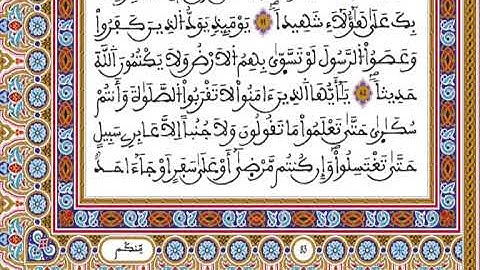 بِكَ عَلَىٰ هَٰؤُلَآءِ شَهِيداًۖ يَوْمَئِذٍ يَوَدُّ الذِينَ كَفَرُواْ
وَعَصَوُاْ الرَّسُولَ لَوْ تَسَّوَّىٰ بِهِمُ الَارْضُ وَلَا يَكْتُمُونَ اَللَّهَ
حَدِيثاًۖ يَٰأَيُّهَا الذِينَ ءَامَنُواْ لَا تَقْرَبُواْ الصَّلَوٰةَ وَأَنتُمْ
سُكَٰرَىٰ حَتَّىٰ تَعْلَمُواْ مَا تَقُولُونَ وَلَا جُنُباً اِلَّا عَابِرِے سَبِيلٍ
حَتَّىٰ تَغْتَسِلُواْۖ وَإِن كُنتُم مَّرْضَىٰ أَوْ عَلَىٰ سَفَرٍ اَوْ جَآءَ احَدٌ
مِّنكُم